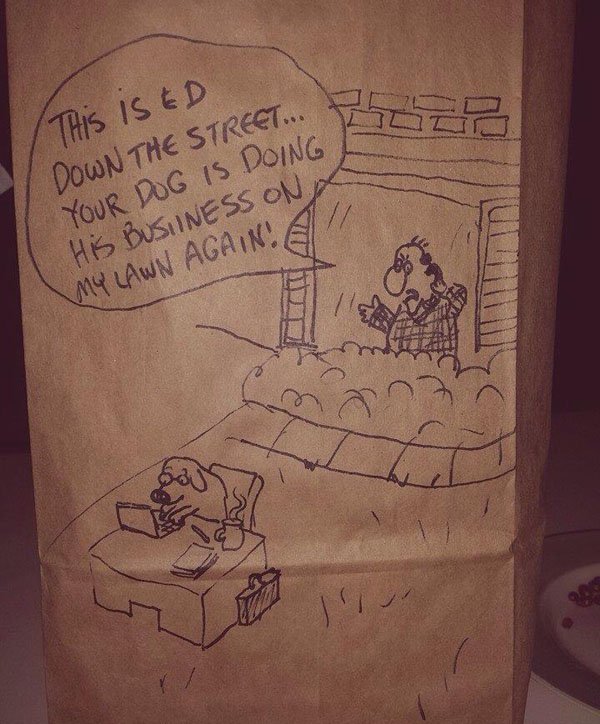 THIS IS ED
DOWN THE STREET...
YOUR DOG IS DOING
HIS BUSIINESS ON
MY LAWN AGAIN!